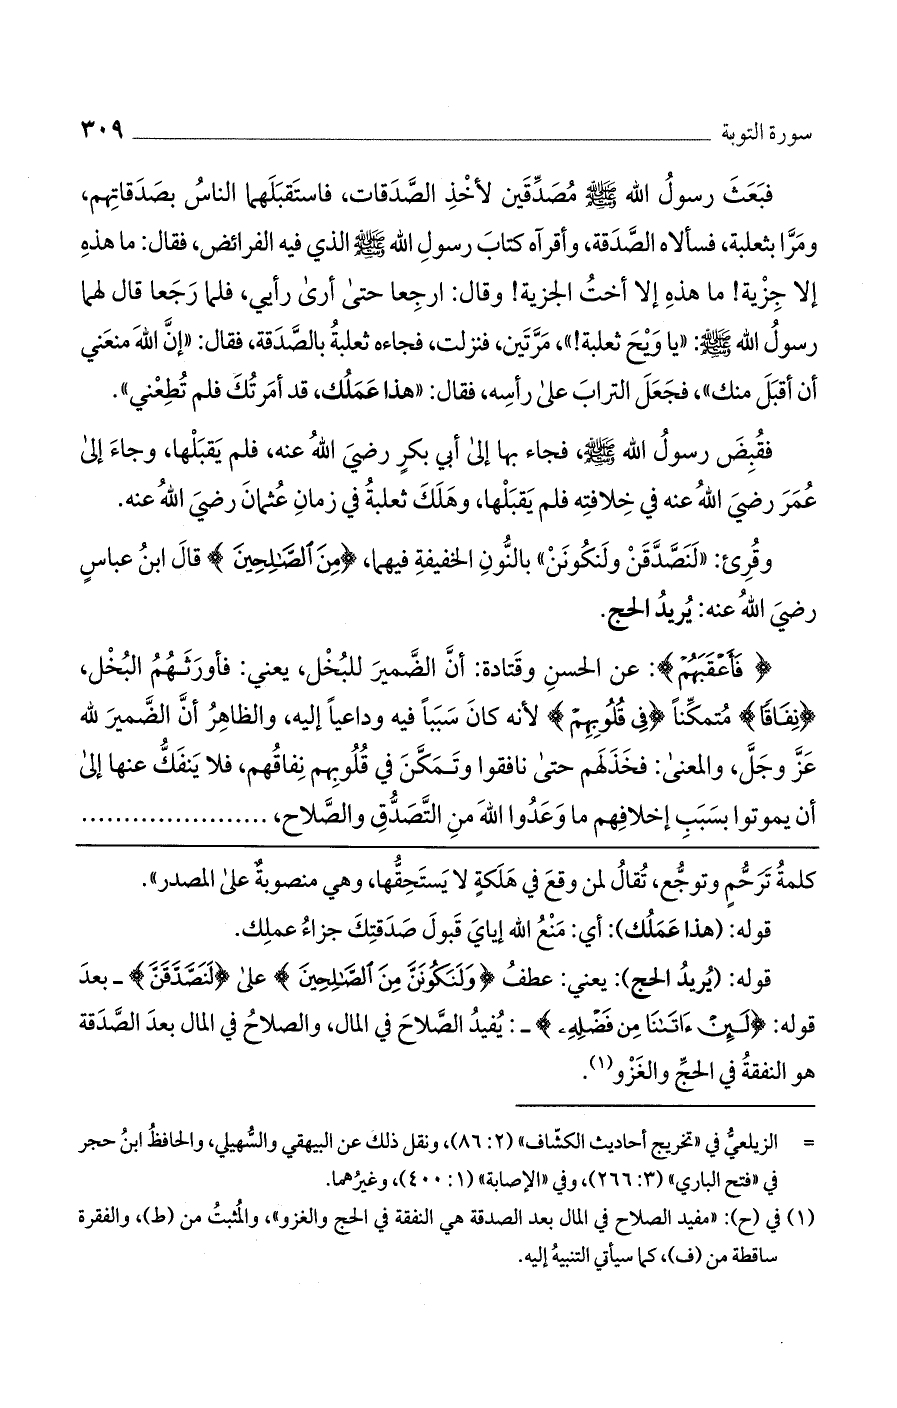 سورة التوبة ٣٠٩
فبَعَثَ رسولُ الله ﷺ مُصَدِّقَين لأخْذِ الصَّدَقات، فاستَقبَلَهما الناسُ بصَدَقاتِهم،
ومَرَّا بثعلبة، فسألاه الصَّدَقة، وأقرآه كتابَ رسولِ الله ﷺ الذي فيه الفرائض، فقال: ما هذهِ
إلا جِزْية! ما هذهِ إلا أختُ الجزية! وقال: ارجِعا حتىٰ أرىٰ رأيي، فلما رَجَعا قال لهما
رسولُ الله ﷺ: «يا وَيْحَ ثعلبة!»، مَرَّتَين، فنزلت، فجاءه ثعلبةُ بالصَّدَقة، فقال: «إنَّ اللهَ منعَني
أن أقبَلَ منك»، فجَعَلَ الترابَ علىٰ رأسِه، فقال: «هذا عَمَلُك، قد أمَرتُكَ فلم تُطِعْني».
فقُبِضَ رسولُ الله ﷺ، فجاء بها إلىٰ أبي بكرٍ رضيَ اللهُ عنه، فلم يَقبَلْها، وجاءَ إلىٰ
عُمَرَ رضيَ اللهُ عنه في خِلافتِه فلم يَقبَلْها، وهَلَكَ ثعلبةُ في زمانِ عُثمانَ رضيَ اللهُ عنه.
وقُرِئ: «لَنَصَّدَّقَنْ ولَنكُونَنْ» بالنُّونِ الخفيفةِ فيهما، ﴿مِنَ ٱلصَّٰلِحِينَ﴾ قالَ ابنُ عباسٍ
رضيَ اللهُ عنه: يُريدُ الحج.
﴿فَأَعْقَبَهُمْ﴾: عن الحسنِ وقَتادة: أنَّ الضَّميرَ للبُخْل، يعني: فأورَثَـهُمُ البُخْل،
﴿نِفَاقًا﴾ مُتمكِّناً ﴿فِي قُلُوبِهِمْ﴾ لأنه كانَ سَبَباً فيه وداعياً إليه، والظاهِرُ أنَّ الضَّميرَ لله
عَزَّ وجَلَّ، والمعنىٰ: فخَذَلَهم حتىٰ نافقوا وتَـمَكَّنَ في قُلُوبِهم نِفاقُهم، فلا يَنفَكُّ عنها إلىٰ
أن يموتوا بسَبَبِ إخلافِهم ما وَعَدُوا اللهَ منِ التَّصَدُّقِ والصَّلاح، .....................
كلمةُ تَرَحُّمٍ وتوجُّع، تُقالُ لمن وقعَ في هَلَكةٍ لا يَستَحِقُّها، وهي منصوبةٌ علىٰ المصدر».
قوله: (هذا عَمَلُك): أي: مَنْعُ الله إيايَ قَبولَ صَدَقتِكَ جزاءُ عملِك.
قوله: (يُريدُ الحج): يعني: عطفُ ﴿وَلَنَكُونَنَّ مِنَ ٱلصَّٰلِحِينَ﴾ علىٰ ﴿لَنَصَّدَّقَنَّ﴾ ـ بعدَ
قوله: ﴿لَئِنْ ءَاتَىٰنَا مِن فَضْلِهِۦ﴾ ـ: يُفيدُ الصَّلاحَ في المال، والصلاحُ في المال بعدَ الصَّدَقة
هو النفقةُ في الحجِّ والغَزْو(١).
= الزيلعيُّ في «تخريج أحاديث الكشّاف» (٢: ٨٦)، ونقل ذلك عن البيهقي والسُّهيلي، والحافظُ ابنُ حجر
في «فتح الباري» (٣: ٢٦٦)، وفي «الإصابة» (١: ٤٠٠)، وغيرُهما.
(١) في (ح): «مفيد الصلاح في المال بعد الصدقة هي النفقة في الحج والغزو»، والمُثبتُ من (ط)، والفقرة
ساقطة من (ف)، كما سيأتي التنبيهُ إليه.